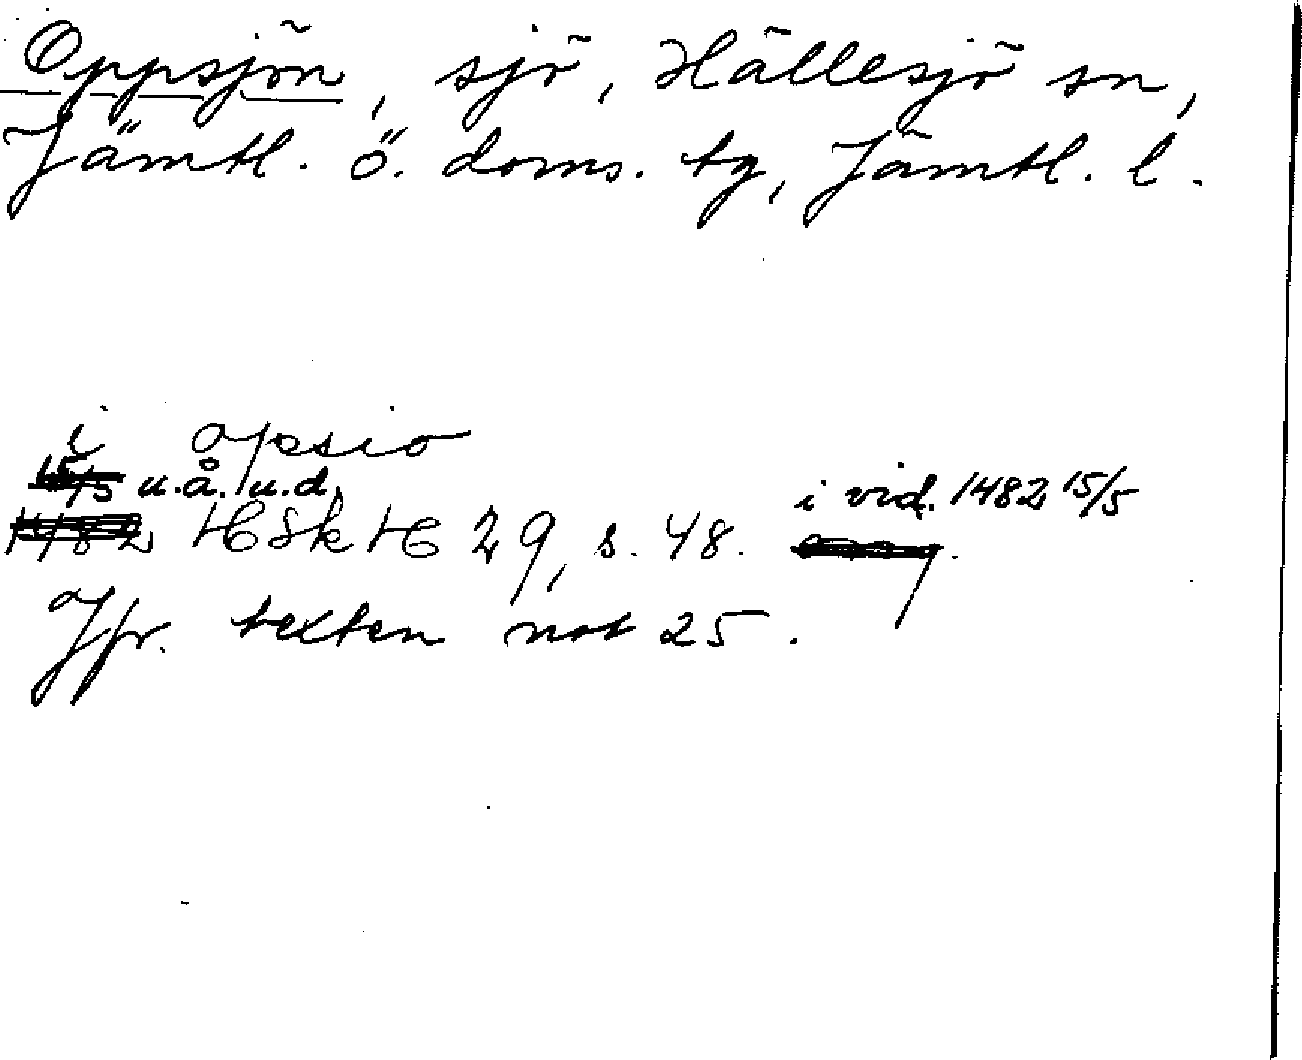 Oppsjön, sjö, Hällesjö sn,
Jämtl. ö. doms. tg, Jämtl. l.
i opsio
15/5 u.å. u.d.
i vid. 1482 15/5
1482 HSkH 29, s. 48.
Jfr. texten not 25.